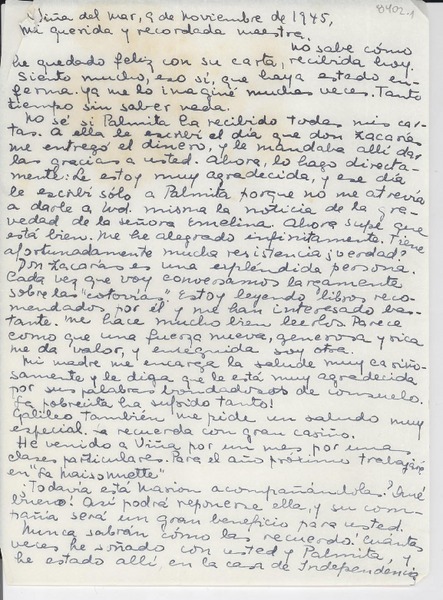 8402-1
Viña del Mar, 9 de noviembre de 1945,
Mi querida y recordada maestra:
No sabe cómo
he quedado feliz con su carta, recibida hoy.
Siento mucho, eso sí, que haya estado en-
ferma. Ya me lo imaginé muchas veces. Tanto
tiempo sin saber nada.
No sé si Palmita ha recibido todas mis car-
tas. A ella le escribí el día que don Zacarías
me entregó el dinero, y le mandaba allí dar
las gracias a usted. Ahora, lo hago directa-
mente: Le estoy muy agradecida, y ese día
le escribí sólo a Palmita porque no me atrevía
a darle a Ud. misma la noticia de la gra-
vedad de la señora Emelina. Ahora supe que
está bien. Me he alegrado infinitamente. Tiene
afortunadamente mucha resistencia ¿verdad?
Don Zacarías es una espléndida persona.
Cada vez que voy conversamos largamente
sobre las Estoy leyendo libros reco-
mendados por él y me han interesado bas-
tante. Me hace mucho bien leerlos. Parece
como que una fuerza nueva, generosa y rica
me da valor, y enseguida soy otra.
Mi madre me encarga la salude muy cariño-
samente y le diga que le está muy agradecida
por sus palabras bondadosas de consuelo.
La pobrecita ha sufrido tanto!
Galileo también me pide un saludo muy
especial. La recuerda con gran cariño.
He venido a Viña por un mes por unas
clases particulares. Para el año próximo trabajaré
en "La Maisonnette"
¿Todavía está Marion acompañándolas? Qué
bueno! Así podrá reponerse ella, y su com-
pañía será un gran beneficio para usted.
Nunca sabrán cómo las recuerdo! Cuántas
veces he soñado con usted y Palmita, y
he estado allí en la casa de Independencia